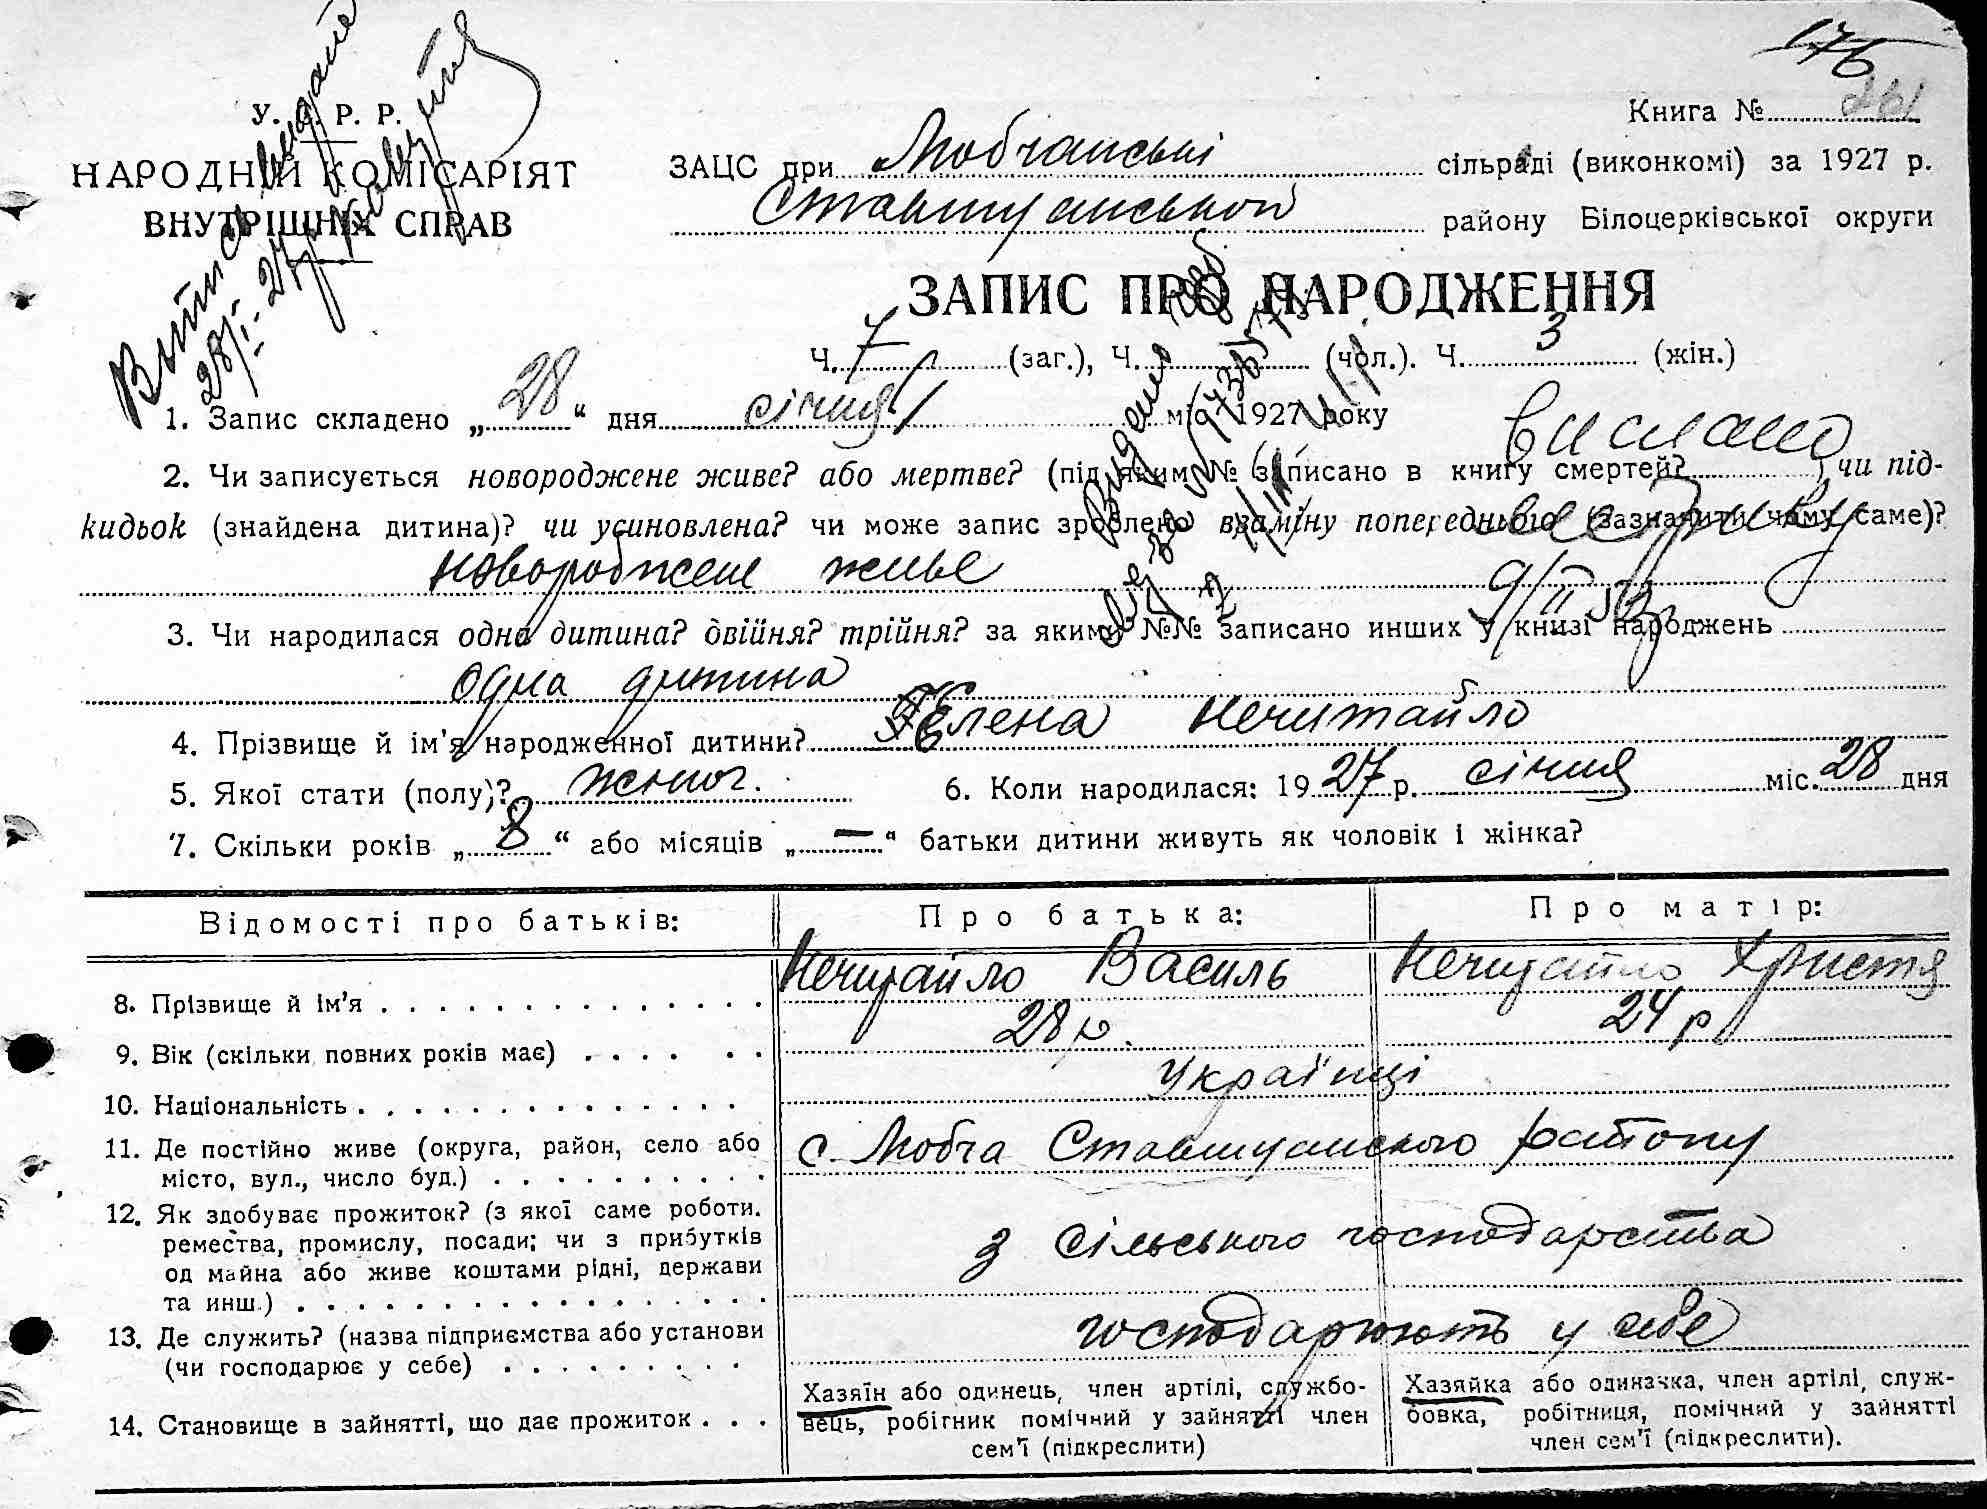 176
261
У. С. Р. Р.
НАРОДНІЙ КОМІСАРІЯТ
ВНУТРІШНІХ СПРАВ
Книга №
ЗАЦС при Любчанські сільраді (виконкомі) за 1927 р.
Ставищанської району Білоцерківської округи
Витись видате
28/I-27р.
ЗАПИС ПРО НАРОДЖЕННЯ
Ч. 7 (заг.), Ч. (чол.). Ч. 3 (жін.)
1. Запис складено „ 28 “ дня січня міс. 1927 року
2. Чи записується новороджене живе? або мертве? (під яким № записано в книгу смертей? ) чи під-
кидьок (знайдена дитина)? чи усиновлена? чи може запис зроблено взаміну попередньою (зазначити чому саме)?
новороджене живе
Видано
вислано
метрику
9/II
3. Чи народилася одна дитина? двійня? трійня? за якими №№ записано инших у книзі народжень
одна дитина
4. Прізвище й ім'я народженної дитини? Єлена Нечитайло
5. Якої стати (полу)? жіноч. 6. Коли народилася: 19 27 р. січня міс. 28 дня
7. Скільки років „ 8 “ або місяців „ — “ батьки дитини живуть як чоловік і жінка?
Відомості про батьків: Про батька: Про матір:
8. Прізвище й ім'я . . . . . . . . . . . . . . Нечитайло Василь Нечитайло Христя
9. Вік (скільки повних років має) . . . . . . 28 р. 24 р
10. Національність . . . . . . . . . . . . . . Українці
11. Де постійно живе (округа, район, село або
місто, вул., число буд.) . . . . . . . . . . с. Любча Ставищанського району
12. Як здобуває прожиток? (з якої саме роботи.
ремества, промислу, посади; чи з прибутків
од майна або живе коштами рідні, держави
та инш.) . . . . . . . . . . . . . . . . з сільського господарства
13. Де служить? (назва підприємства або установи
(чи господарює у себе) . . . . . . . . . господарюють у себе
14. Становище в зайнятті, що дає прожиток . . .
Хазяїн або одинець, член артілі, службо-
вець, робітник помічний у зайнятті член
сем'ї (підкреслити)
Хазяйка або одиначка, член артілі, служ-
бовка, робітниця, помічний у зайнятті
член сем'ї (підкреслити).